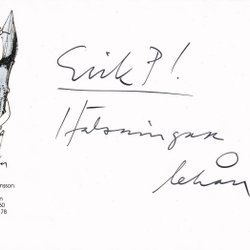 Erik P!
Hälsningar
nsson
n
60
78